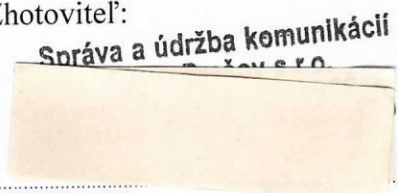 Zhotoviteľ:
Správa a údržba komunikácií
s.r.o.